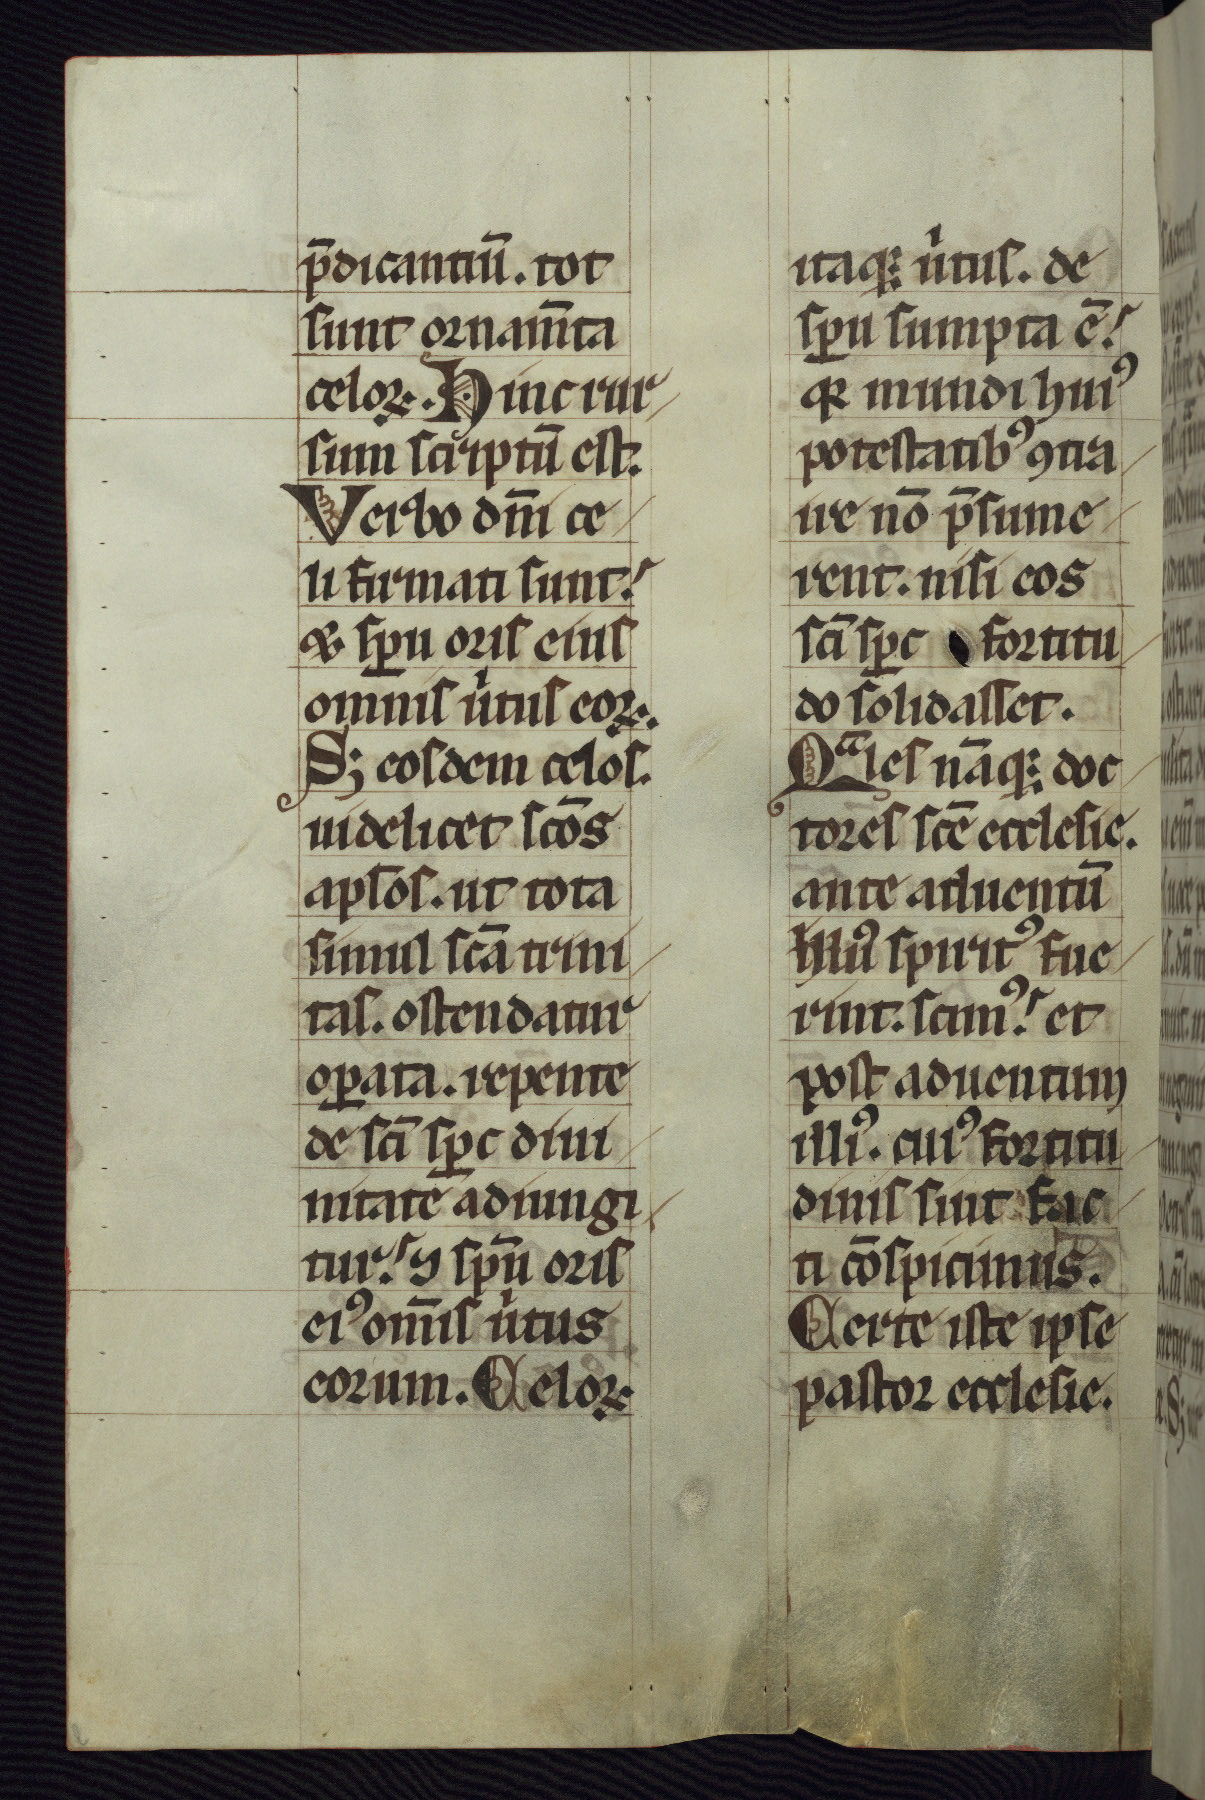 p̄dicantiū. tot
sunt ornam̄ta
celoꝝ. Hinc rur
sum scriptū est.
Verbo dn̄i ce
li firmati sunt!
& sp̄u oris eius
omnis ůtus eoꝝ.
Sꝫ eosdem celos.
uidelicet scōs
apl̄os. ut tota
simul scā trini
tas. ostendatur
oꝑata. repente
de sc̄i sp̄c diui
nitate adiungi
tur! ⁊ sp̄u oris
ei⁹ om̄is ůtus
eorum. Celoꝝ
itaqꝫ ůtus. de
sp̄u sumpta ē!
qꝛ mundi hui⁹
potestatib⁹ ꝯtra
ire nō p̄sume
rent. nisi eos
sc̄i sp̄c fortitu
do solidasset.
Qᵃles nāqꝫ doc
tores scē ecclesie.
ante aduentū
illiu⁹ spirit⁹ fue
rint. scim⁹! et
post aduentum
illi⁹. cui⁹ fortitu
dinis sint fac
ti cōspicimus.
Certe iste ipse
pastor ecclesie.